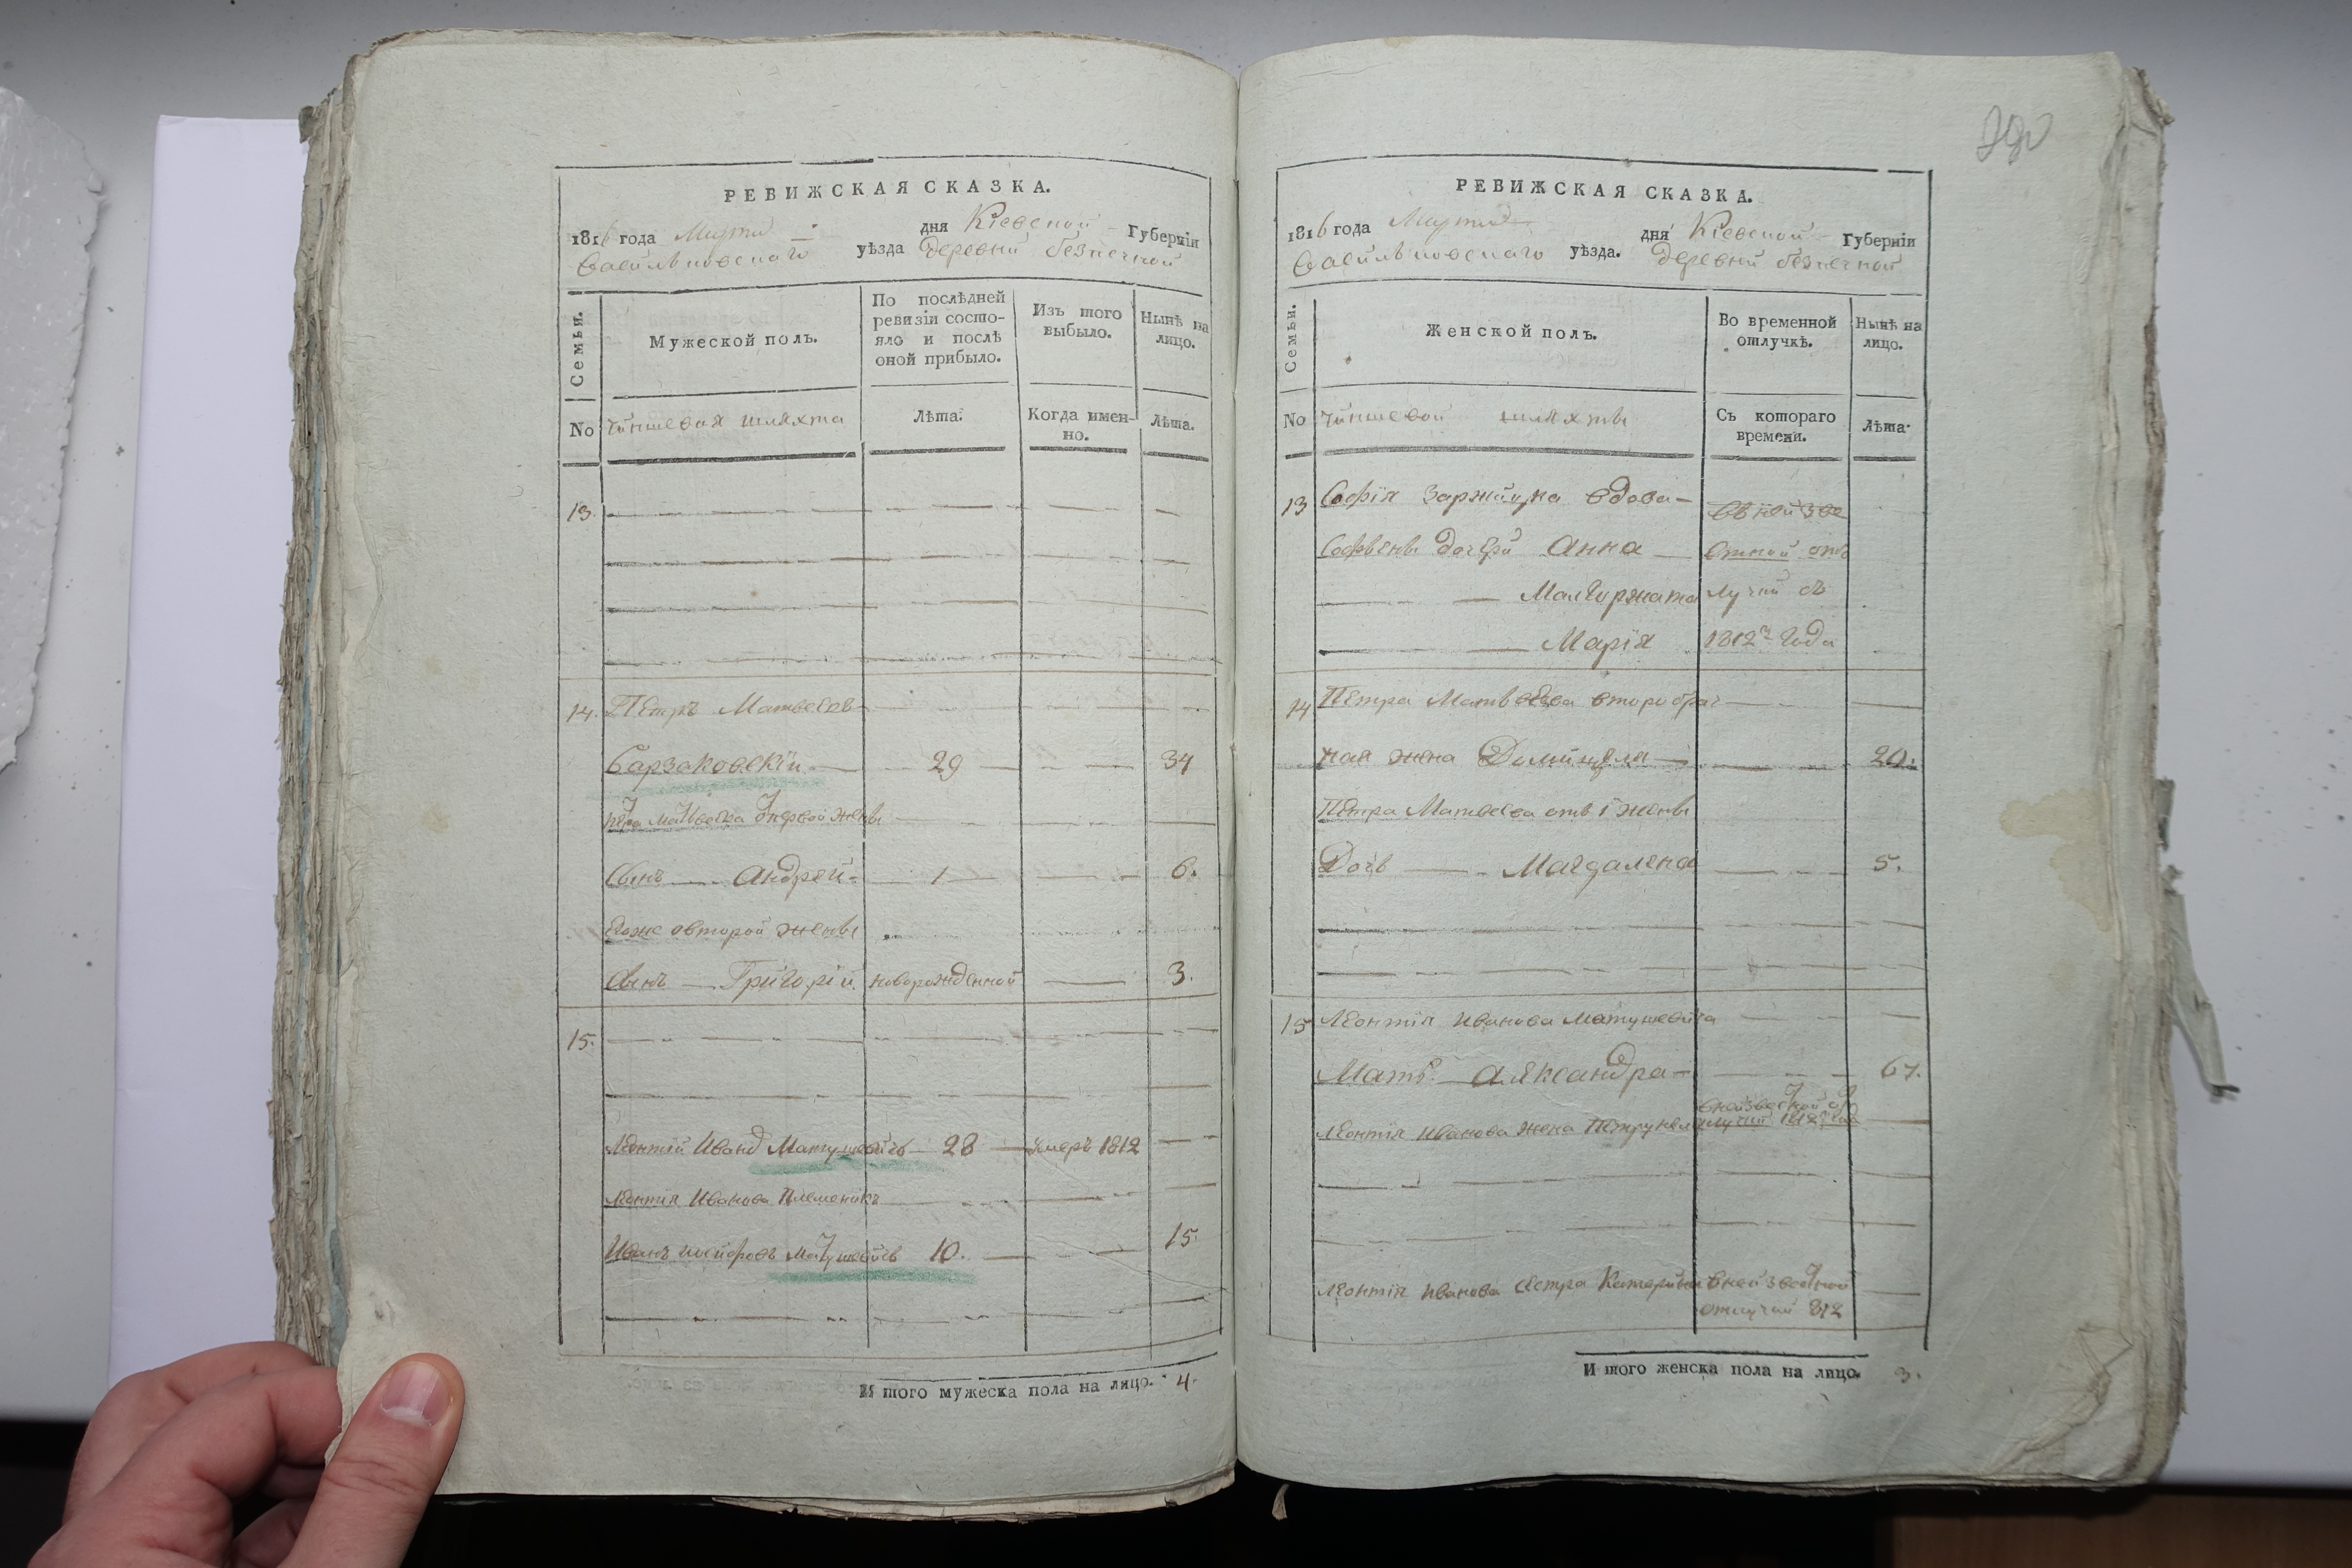 РЕВИЖСКАЯ СКАЗКА.
1816 года Марта — дня Кіевской Губерніи
Васильковского уѣзда деревни безпечной
Семьи.
Мужеской полъ.
По послѣдней ревизіи состояло и послѣ оной прибыло.
Изъ того выбыло.
Нынѣ на лицо.
No чиншевая шляхта
Лѣта.
Когда именно.
Лѣта.
13.
14. Петръ Матвеевъ
Барзаковскій 29 34
Петра Матвеева Э первой жены
Сынъ Андрей 1 6.
Егоже овторой жены
Сынъ Григорій новорожденной 3.
15.
Леонтій Иванов Матушевичь 28 умеръ 1812
Леонтія Иванова Племеникъ
Иванъ Иосифовъ Матушевичь 10. 15.
И того мужеска пола на лицо. 4.
290
РЕВИЖСКАЯ СКАЗКА.
1816 года Марта дня Кіевской Губерніи
Васильковского уѣзда. деревни безпечной
Семьи.
Женской полъ.
Во временной отлучкѣ.
Нынѣ на лицо.
No чиншевой шляхты
Съ котораго времени.
Лѣта.
13 Софія Заржицка вдова — въ неизве
Софіены дочери Анна — стной отъ
Малгоржата лучки съ
Марія 1812го года
14 Петра Матвеева второбрач
ная жена Домицеля — 20.
Петра Матвеева отъ 1 жены
Дочь Магдалена 5.
15 Леонтія Иванова Матушевича
Мать Александра — 67.
Леонтія Иванова жена Петрунеля внеизвестной отлучки 1812 года
Леонтія Иванова сестра Катерина внеизвестной
отлучки 812
И того женска пола на лицо. 3.